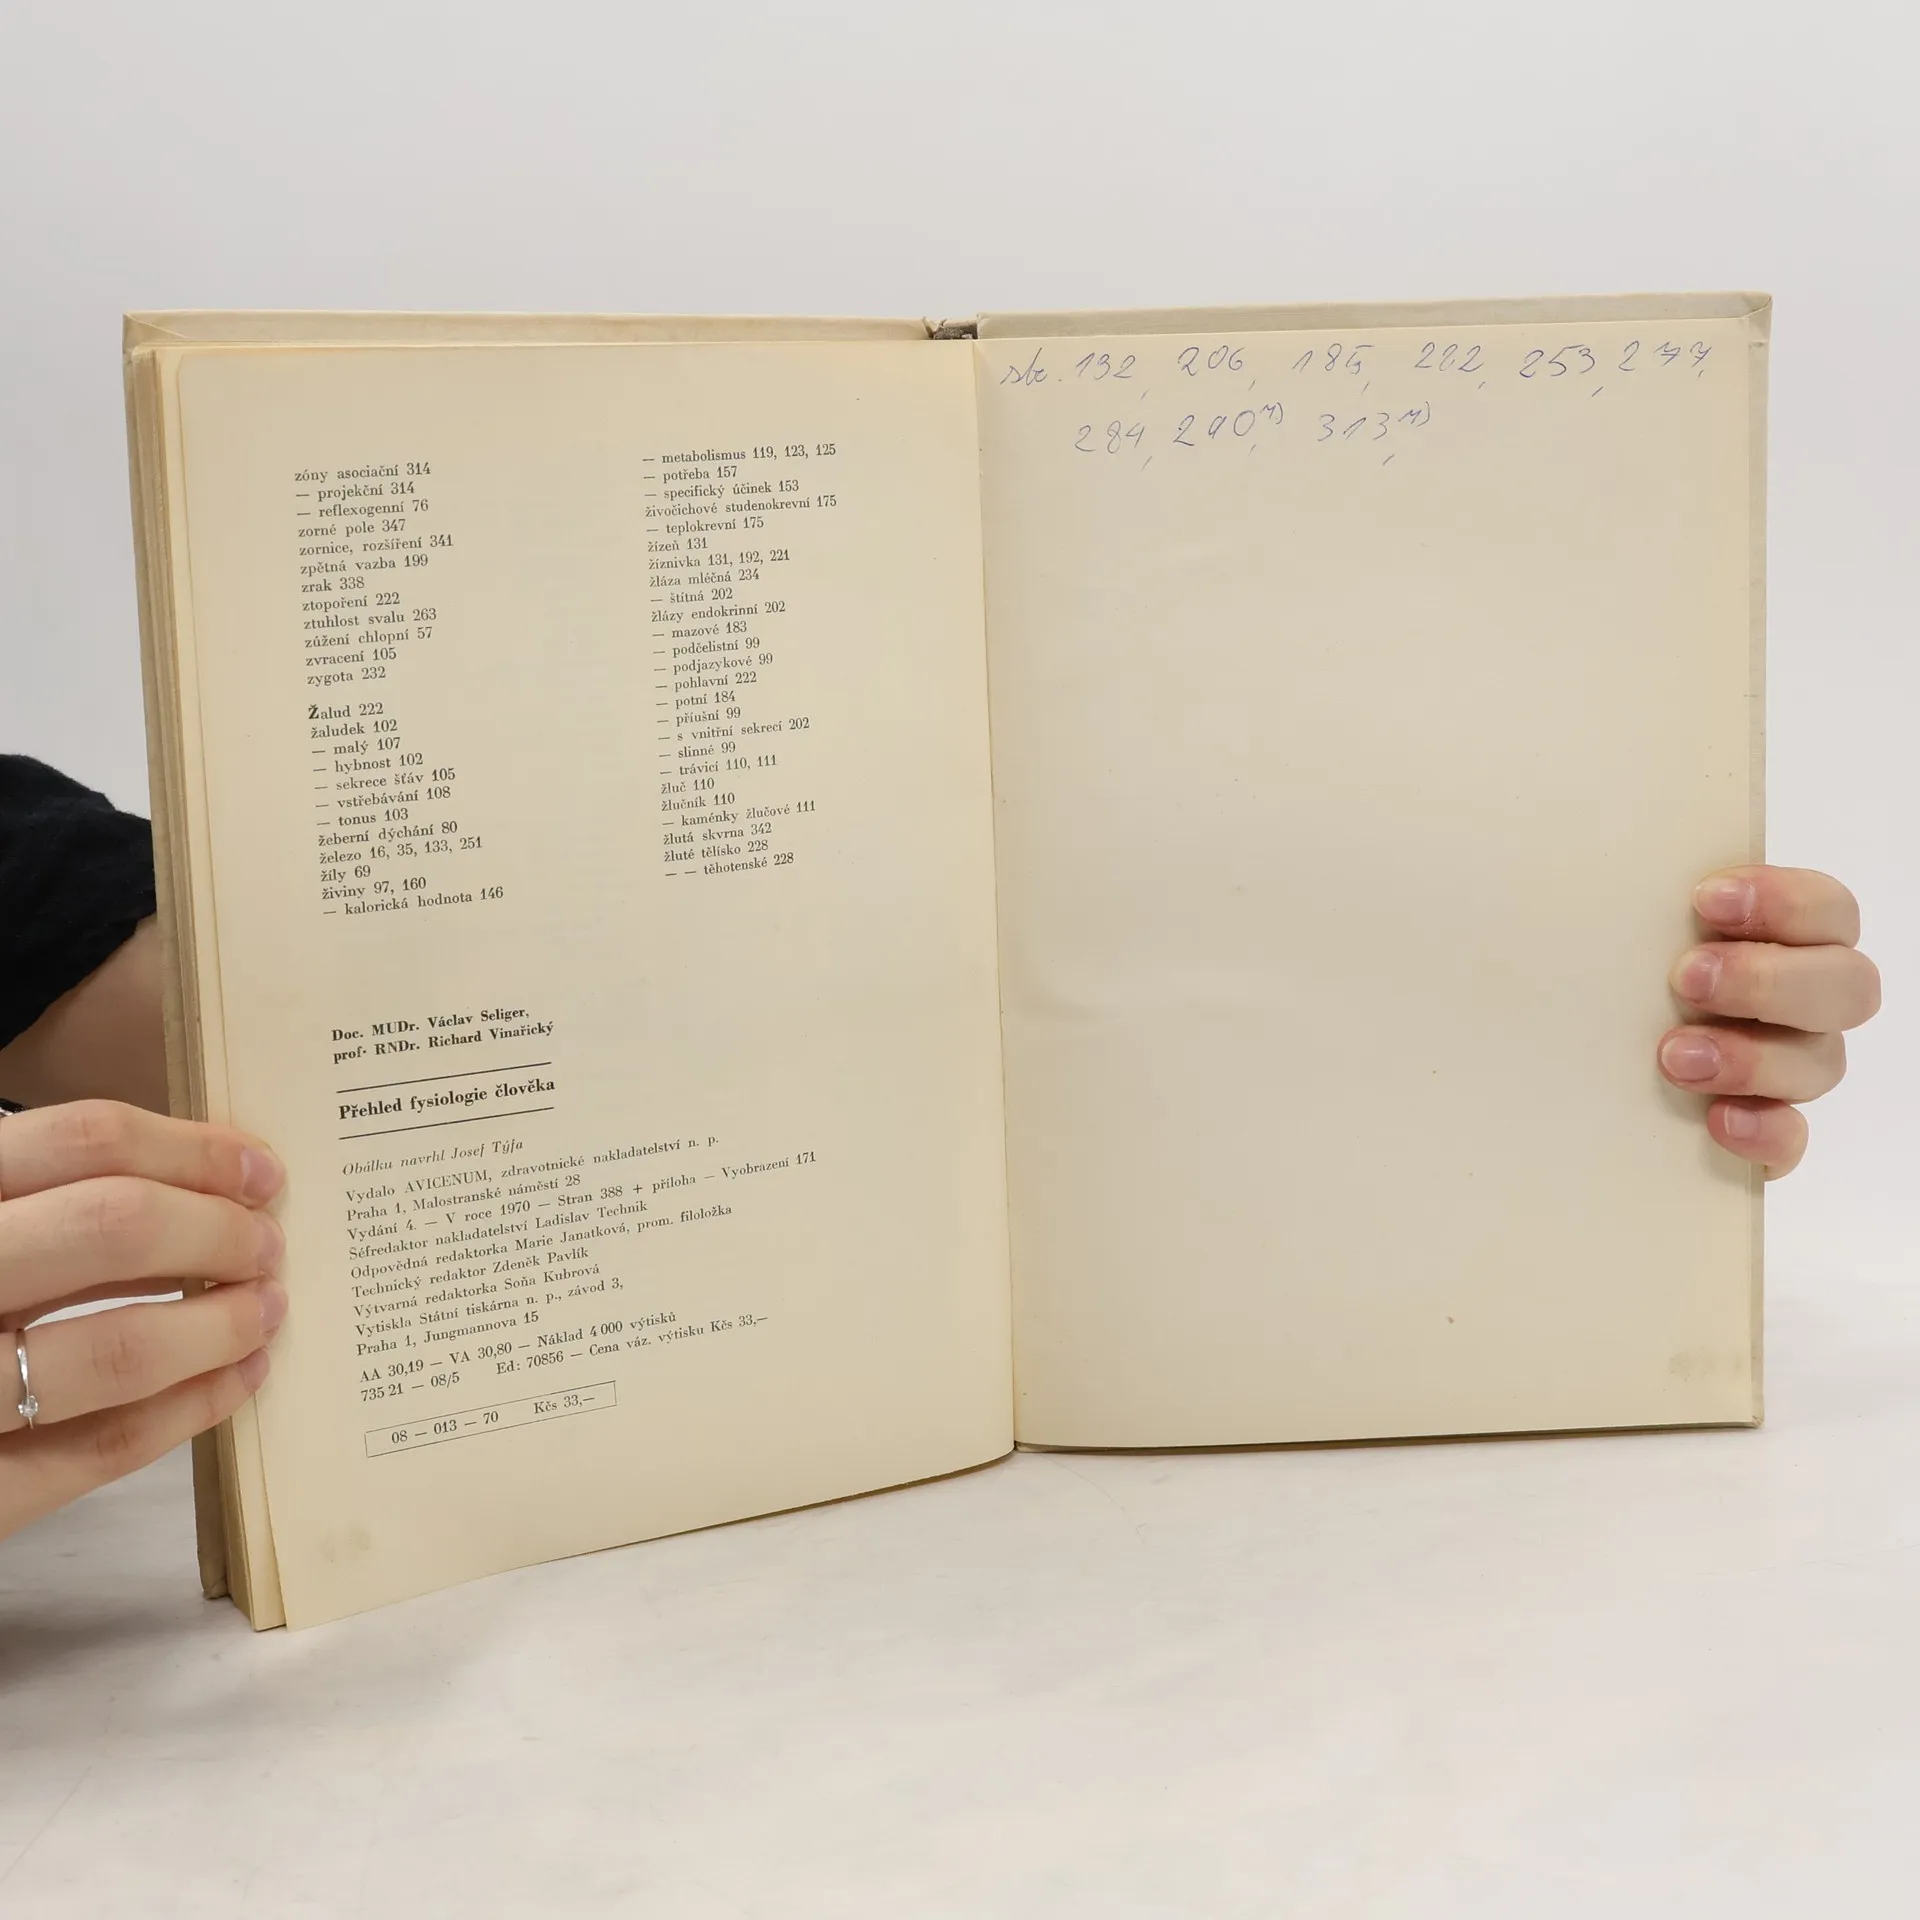 zóny asociační 314
— projekční 314
— reflexogenní 76
zorné pole 347
zornice, rozšíření 341
zpětná vazba 199
zrak 338
ztopoření 222
ztuhlost svalu 263
zúžení chlopní 57
zvracení 105
zygota 232
Žalud 222
žaludek 102
— malý 107
— hybnost 102
— sekrece šťáv 105
— vstřebávání 108
— tonus 103
žeberní dýchání 80
železo 16, 35, 133, 251
žíly 69
živiny 97, 160
— kalorická hodnota 146
— metabolismus 119, 123, 125
— potřeba 157
— specifický účinek 153
živočichové studenokrevní 175
— teplokrevní 175
žízeň 131
žíznivka 131, 192, 221
žláza mléčná 234
— štítná 202
žlázy endokrinní 202
— mazové 183
— podčelistní 99
— podjazykové 99
— pohlavní 222
— potní 184
— příušní 99
— s vnitřní sekrecí 202
— slinné 99
— trávicí 110, 111
žluč 110
žlučník 110
— kaménky žlučové 111
žlutá skvrna 342
žluté tělísko 228
— — těhotenské 228
Doc. MUDr. Václav Seliger,
prof. RNDr. Richard Vinařický
Přehled fysiologie člověka
Obálku navrhl Josef Týfa
Vydalo AVICENUM, zdravotnické nakladatelství n. p.
Praha 1, Malostranské náměstí 28
Vydání 4. — V roce 1970 — Stran 388 + příloha — Vyobrazení 171
Šéfredaktor nakladatelství Ladislav Technik
Odpovědná redaktorka Marie Janatková, prom. filoložka
Technický redaktor Zdeněk Pavlík
Výtvarná redaktorka Soňa Kubrová
Vytiskla Státní tiskárna n. p., závod 3,
Praha 1, Jungmannova 15
AA 30,19 — VA 30,80 — Náklad 4 000 výtisků
735 21 — 08/5 Ed: 70856 — Cena váz. výtisku Kčs 33,—
08 — 013 — 70 Kčs 33,—
str. 132, 206, 185, 222, 253, 277,
284, 290, 313,